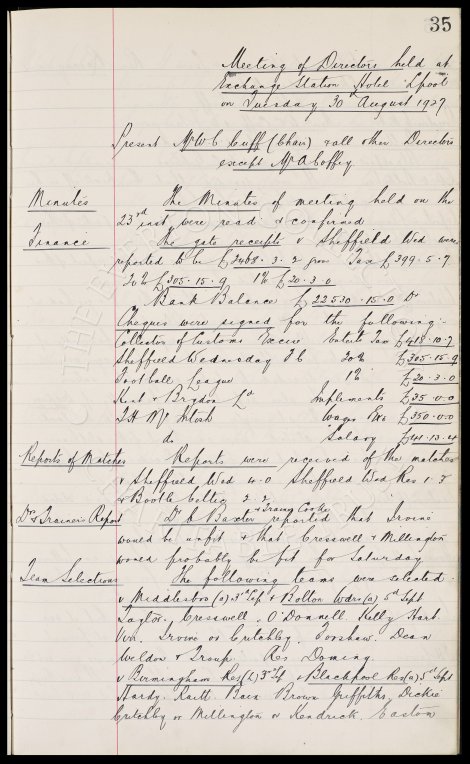 35
Meeting of Directors held at
Exchange Station Hotel L'pool
on Tuesday 30 August 1927
Present Mr W C Cuff (Chair) & all other Directors
except Mr A Coffey.
Minutes The Minutes of meeting held on the
23rd inst were read & confirmed
Finance The gate receipts v Sheffield Wed were
reported to be £2468.3.2 gross Tax £399.5.7
20% £305.15.9 1% £20.3.0
Bank Balance £22530.15.0 Dr
Cheques were signed for the following:
Collector of Customs & Excise Enterts Tax £418.10.7
Sheffield Wednesday F C 20% £305.15.9
Football League 1% £20.3.0
Kent & Brydon Ld Implements £35.0.0
T H McIntosh Wages &c £350.0.0
do Salary £41.13.4
Reports of Matches Reports were received of the matches
v Sheffield Wed 4.0 Sheffield Wed Res 1.
v Bootle Celtic 2.2
Dr & Trainers Report Dr C Baxter & Trainer Cooke reported that Irvine
would be unfit & that Cresswell & Millington
would probably be fit for Saturday
Team Selections The following teams were selected
v Middlesboro (a) 3rd Sept & Bolton Wdrs (a) 5th Sept
Taylor. Cresswell. O'Donnell. Kelly Hart.
Virr. Irvine or Critchley. Forshaw. Dean
Weldon & Troup. Res Dominy.
v Birmingham Res (h) 3rd Sept & Blackpool Res (a) 5th Sept
Hardy. Raitt. Bain Brown Griffiths, Dickie
Critchley or Millington or Kendrick, Easton